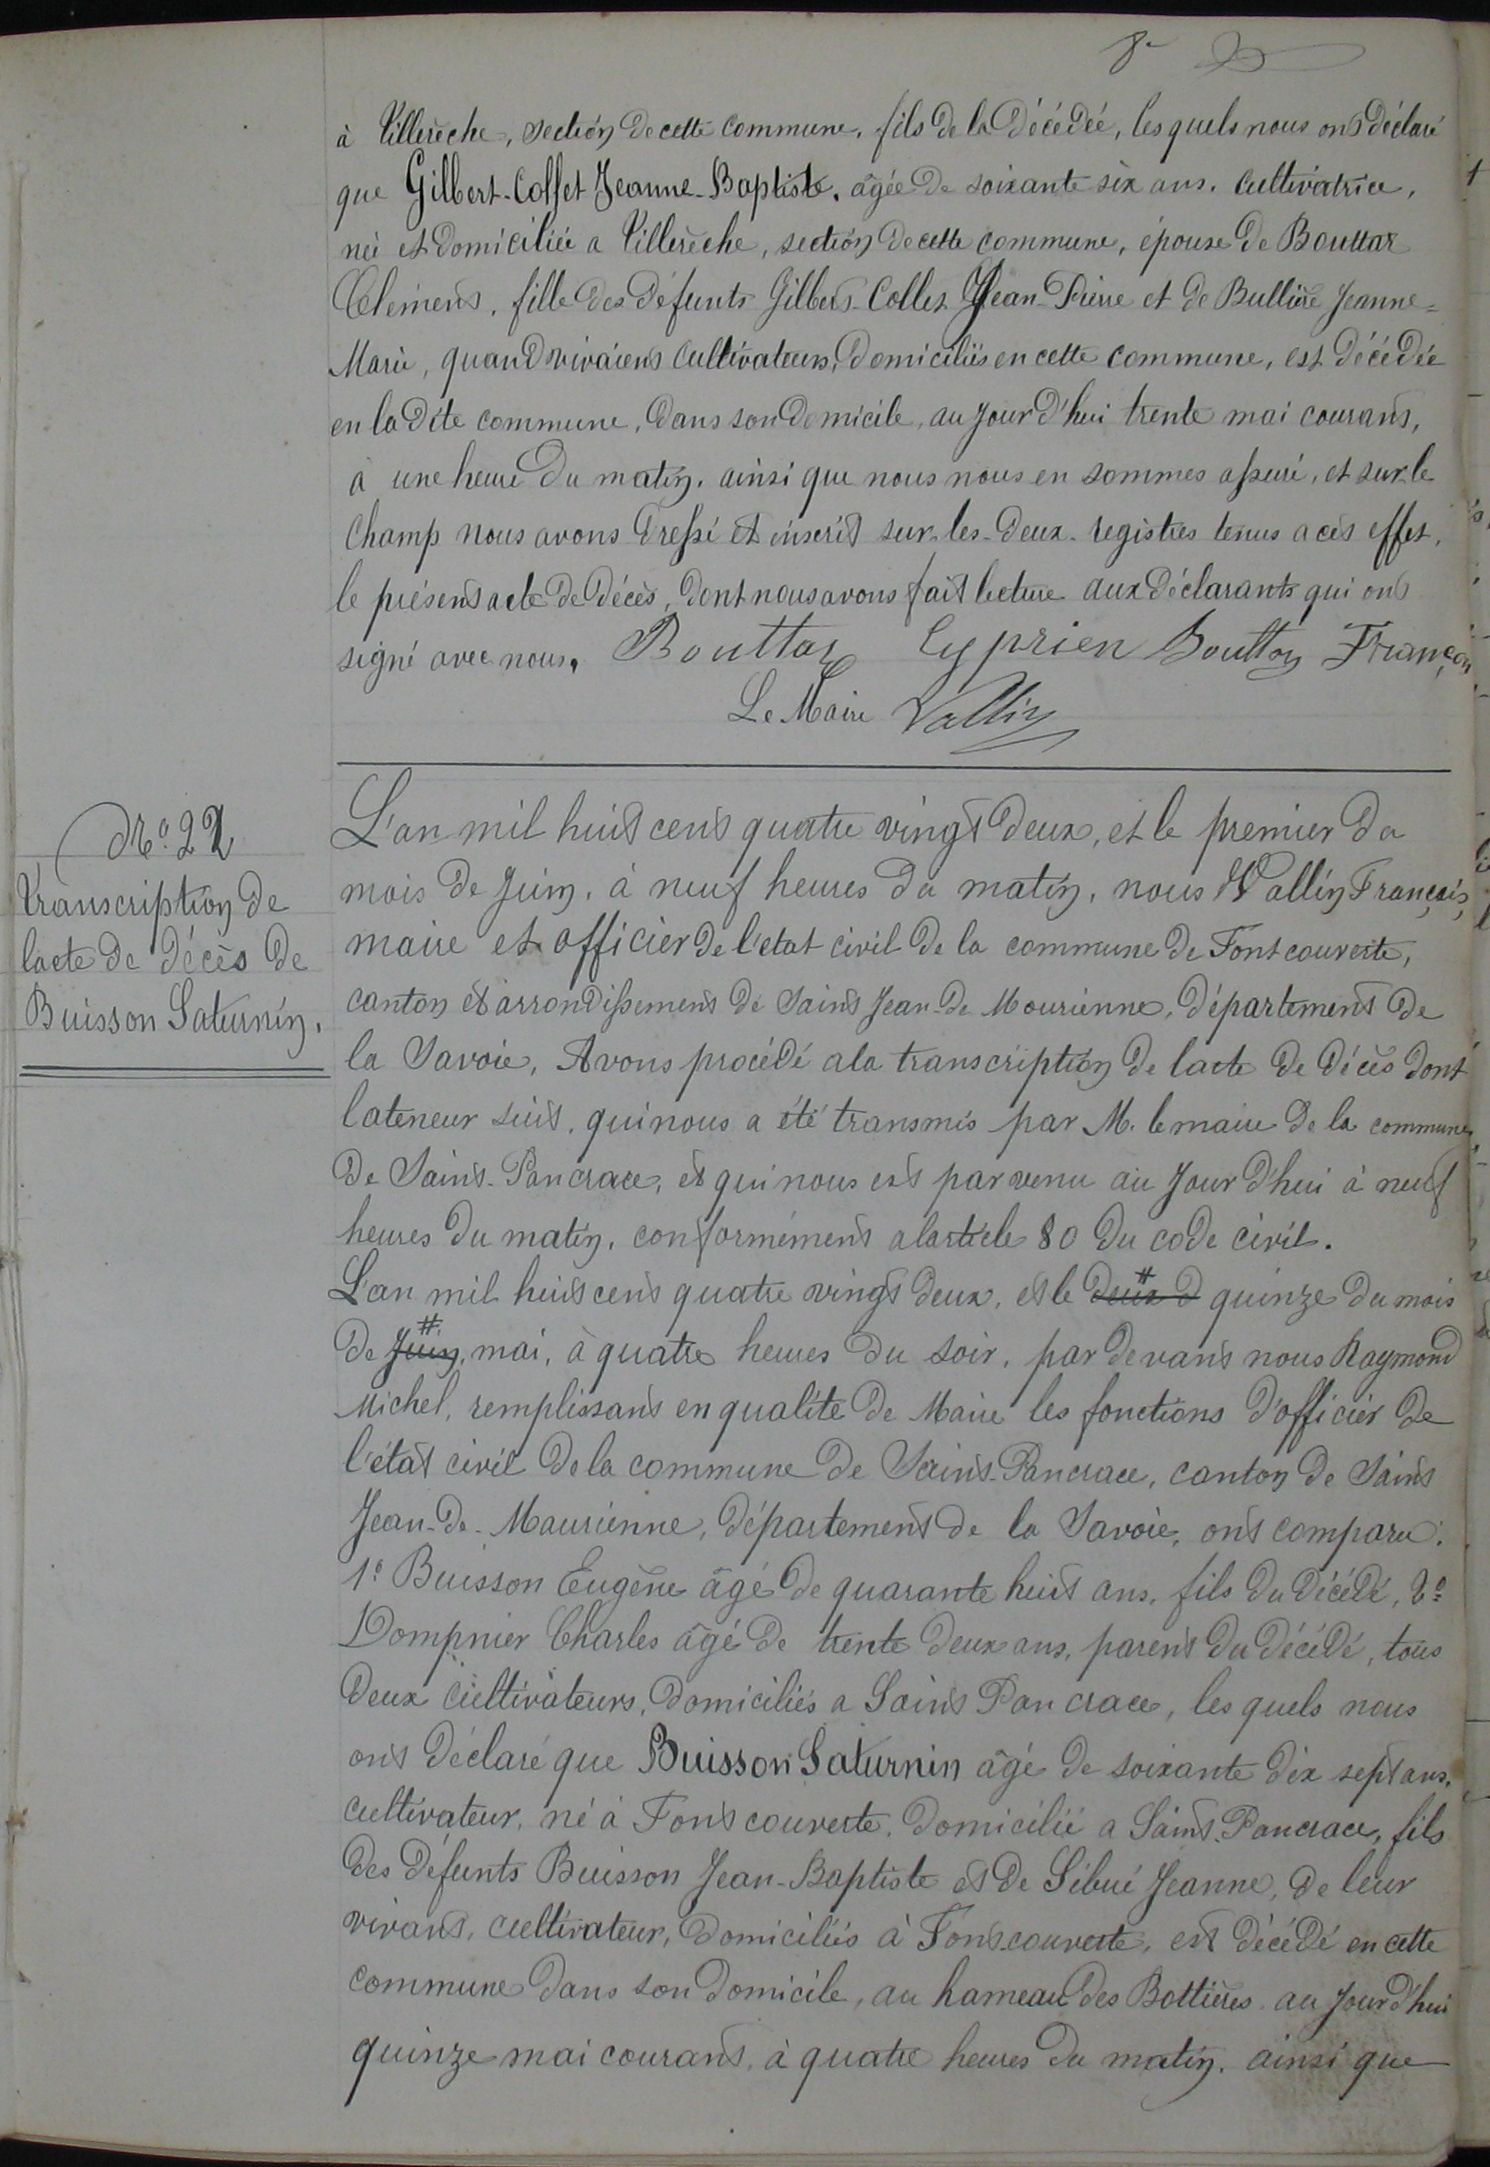 8e
à Villerêche, section de cette commune, fils de la décédée, les quels nous ont déclaré
que Gilbert-Collet Jeanne-Baptiste, âgée de soixante six ans, cultivatrice,
née et domiciliée a Villerêche, section de cette commune, épouse de Bouttaz
Clément, fille des défunts Gilbert-Collet Jean-Pierre et de Bullière Jeanne-
Marie, quand vivaient cultivateurs, domiciliés en cette commune, est décédée
en la dite commune, dans son domicile, au jour d'hui trente mai courant,
à une heure du matin, ainsi que nous nous en sommes assuré, et sur le
champ nous avons dressé et inscrit sur les deux registres tenus a cet effet,
le présent acte de décès, dont nous avons fait lecture aux déclarants qui ont
signé avec nous. Bouttaz Cyprien Bouttaz François
Le Maire Vallin
No. 22
Transcription de
lacte de décès de
Buisson Saturnin.
L'an mil huit cent quatre vingt deux, et le premier du
mois de Juin, à neuf heures du matin, nous Vallin François,
maire et officier de l'etat civil de la commune de Fontcouverte,
canton et arrondissement de Saint Jean-de Mourienne, département de
la Savoie, Avons procédé a la transcription de lacte de décès dont
lateneur suit, qui nous a été transmis par M. le maire de la commune
de Saint-Pancrace, et qui nous est parvenu au jour d'hui à neuf
heures du matin, conformément a larticle 80 du code civil.
L'an mil huit cent quatre vingt deux, et le deux d # quinze du mois
de Juin, # mai, à quatre heures du soir, par devant nous Raymond
Michel, remplissant en qualité de Maire les fonctions d'officier de
l'état civil de la commune de Saint-Pancrace, canton de Saint
Jean-de-Maurienne, département de la Savoie, ont comparu:
1o Buisson Eugène âgé de quarante huit ans, fils du décédé, 2o
Dompnier Charles âgé de trente deux ans, parent du décédé, tous
deux cultivateurs, domiciliés a Saint Pancrace, les quels nous
ont déclaré que Buisson Saturnin âgé de soixante dix sept ans,
cultivateur, né à Fontcouverte, domicilié a Saint-Pancrace, fils
des défunts Buisson Jean-Baptiste et de Sibué Jeanne, de leur
vivant, cultivateur, domiciliés à Fontcouverte, est décédé en cette
commune dans son domicile, au hameau des Bottières au jour d'hui
quinze mai courant, à quatre heures du matin, ainsi que